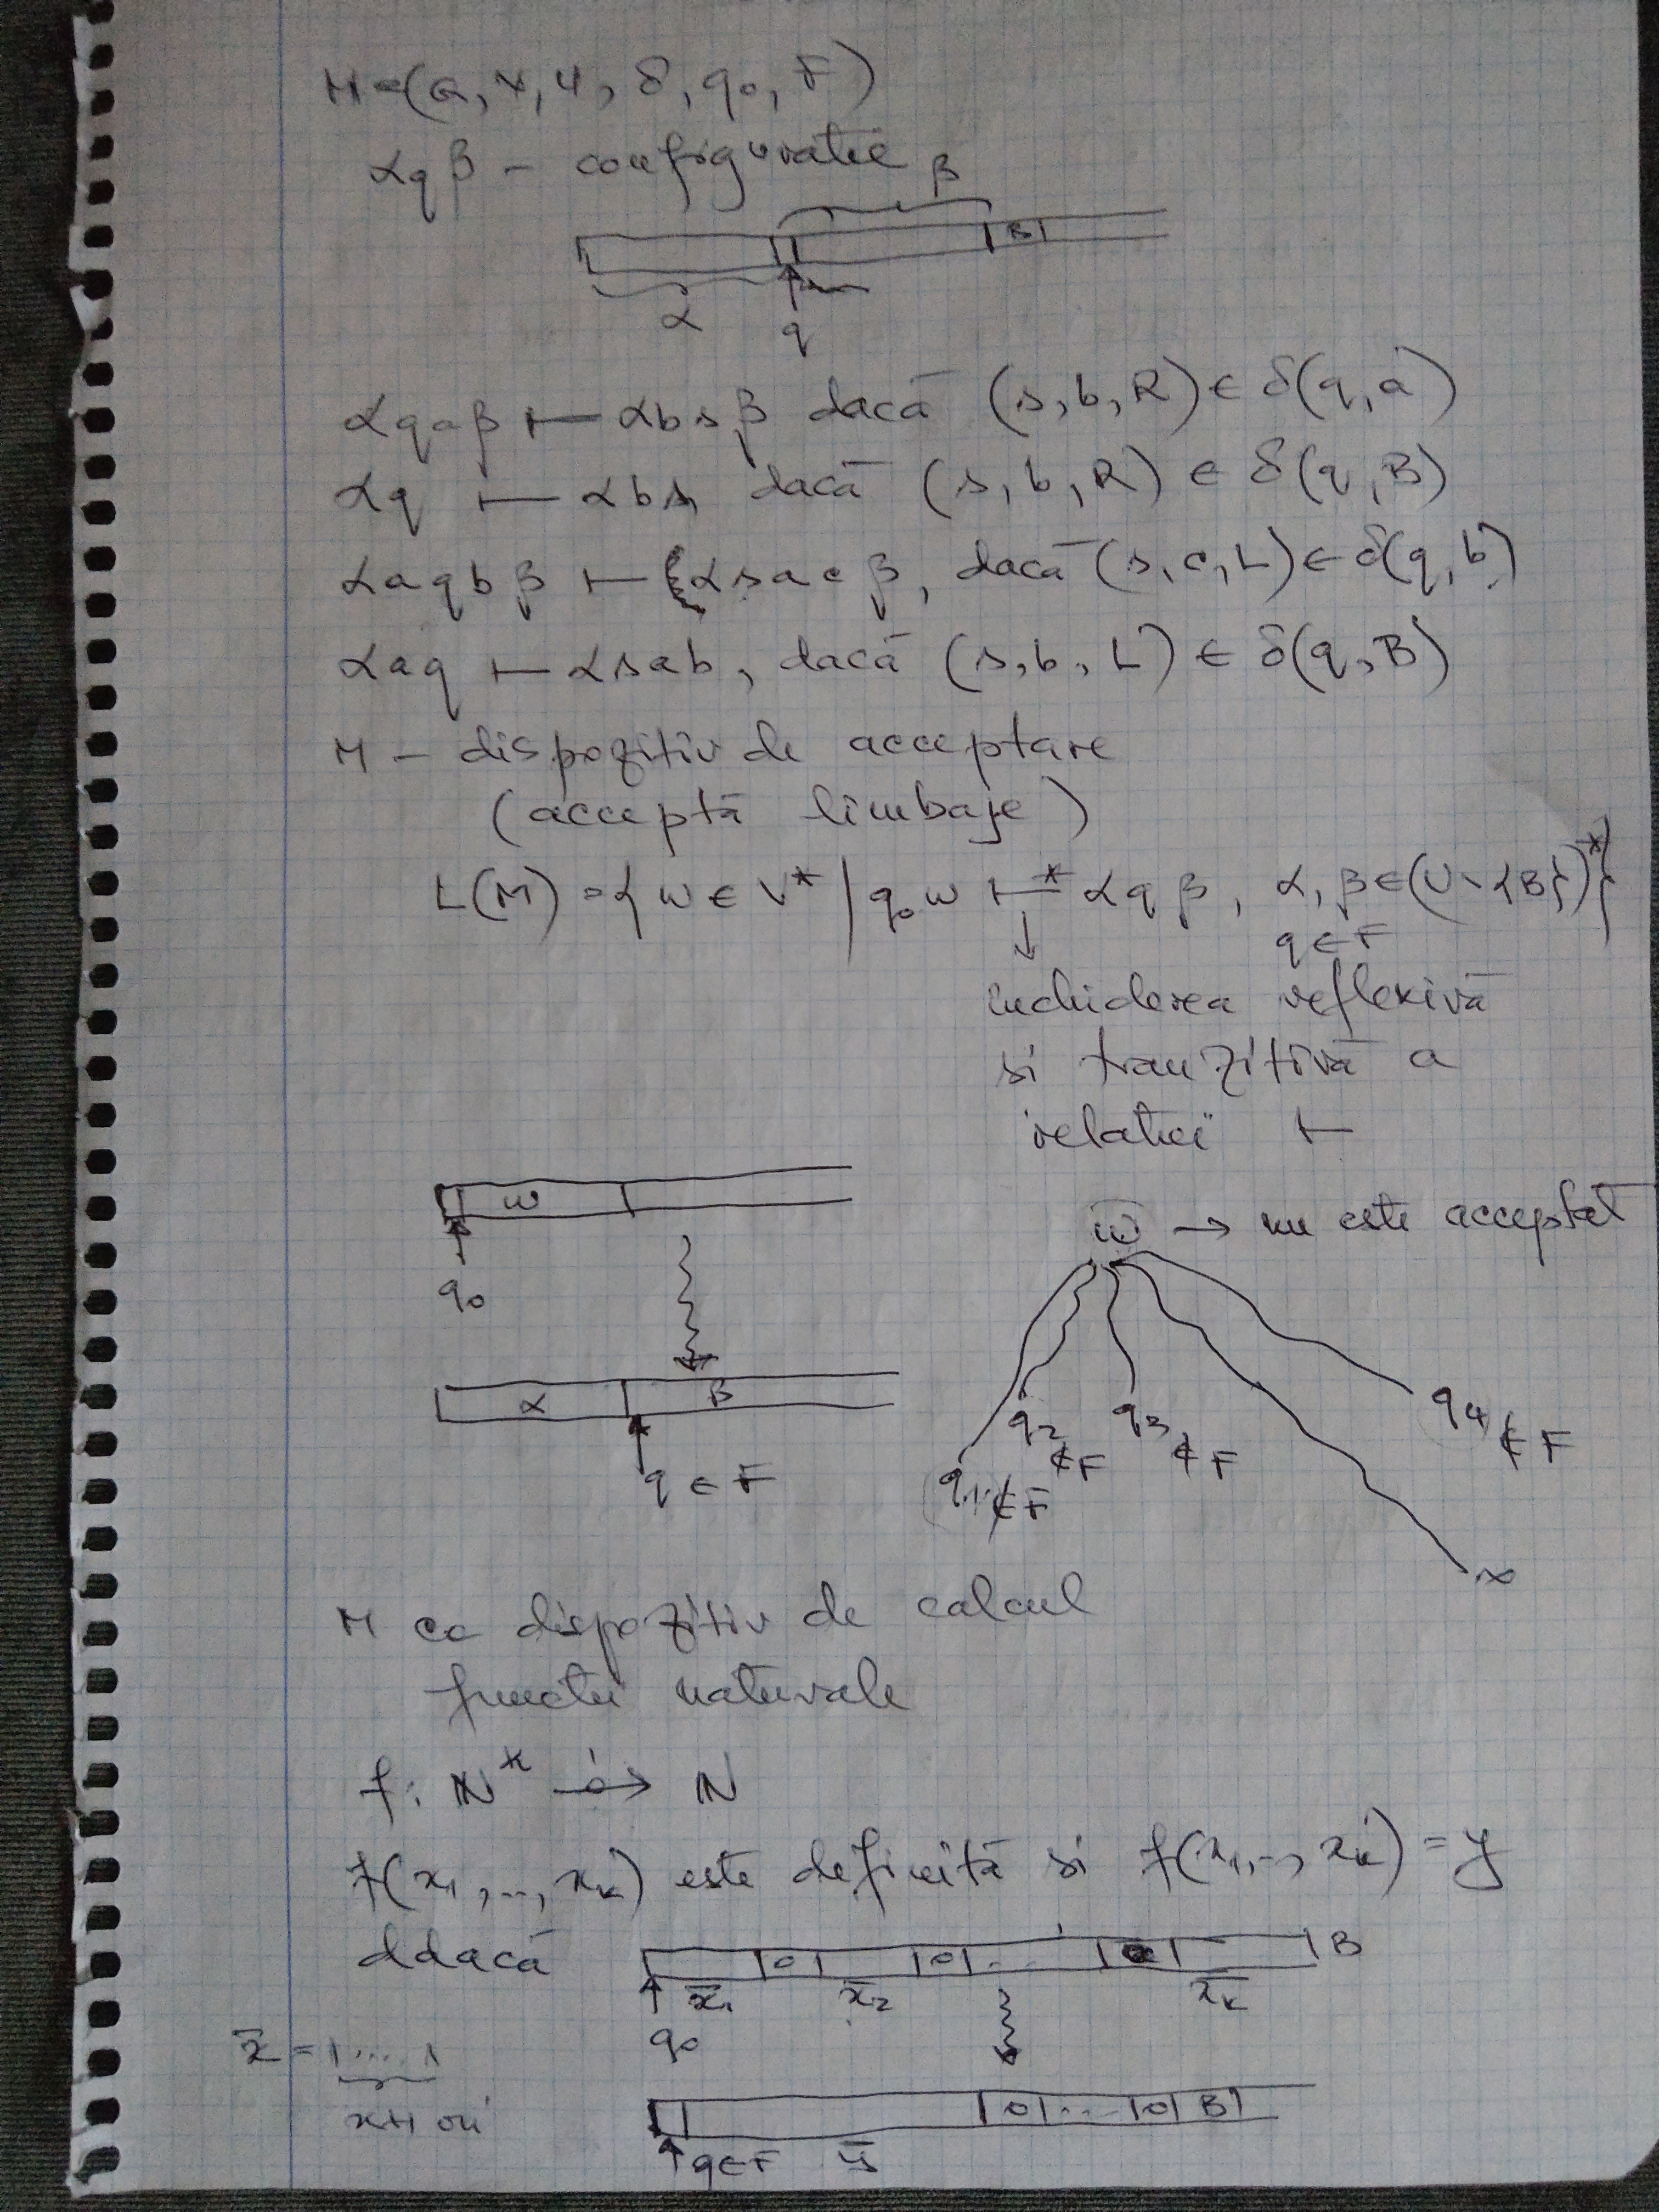 M=(Q, V, U, δ, q₀, F)
αqβ – configuratie
β
B
α
q
αqaβ ⊢ αbsβ dacă (s,b,R) ∈ δ(q,a)
αq ⊢ αbs, dacă (s,b,R) ∈ δ(q,B)
αaqbβ ⊢ αsacβ, dacă (s,c,L) ∈ δ(q,b)
αaq ⊢ αsab, dacă (s,b,L) ∈ δ(q,B)
M – dispozitiv de acceptare
(acceptă limbaje)
L(M) = { w ∈ V* | q₀w ⊢* αqβ, α,β ∈ (U \ {B})* }
q ∈ F
↓
inchiderea reflexivă
si tranzitivă a
relatiei ⊢
w
q₀
α β
q ∈ F
w → nu este acceptat
q₁ ∉ F
q₂ ∉ F
q₃ ∉ F
q₄ ∉ F
∞
M ca dispozitiv de calcul
functii naturale
f: ℕᵏ → ℕ
f(x₁,..,xₖ) este definită si f(x₁,..,xₖ) = y
ddacă
0 0 ... B
x̄₁ x̄₂ x̄ₖ
q₀
x̄ = 1...1
x+1 ori
0 ... 0 B
q∈F ȳ